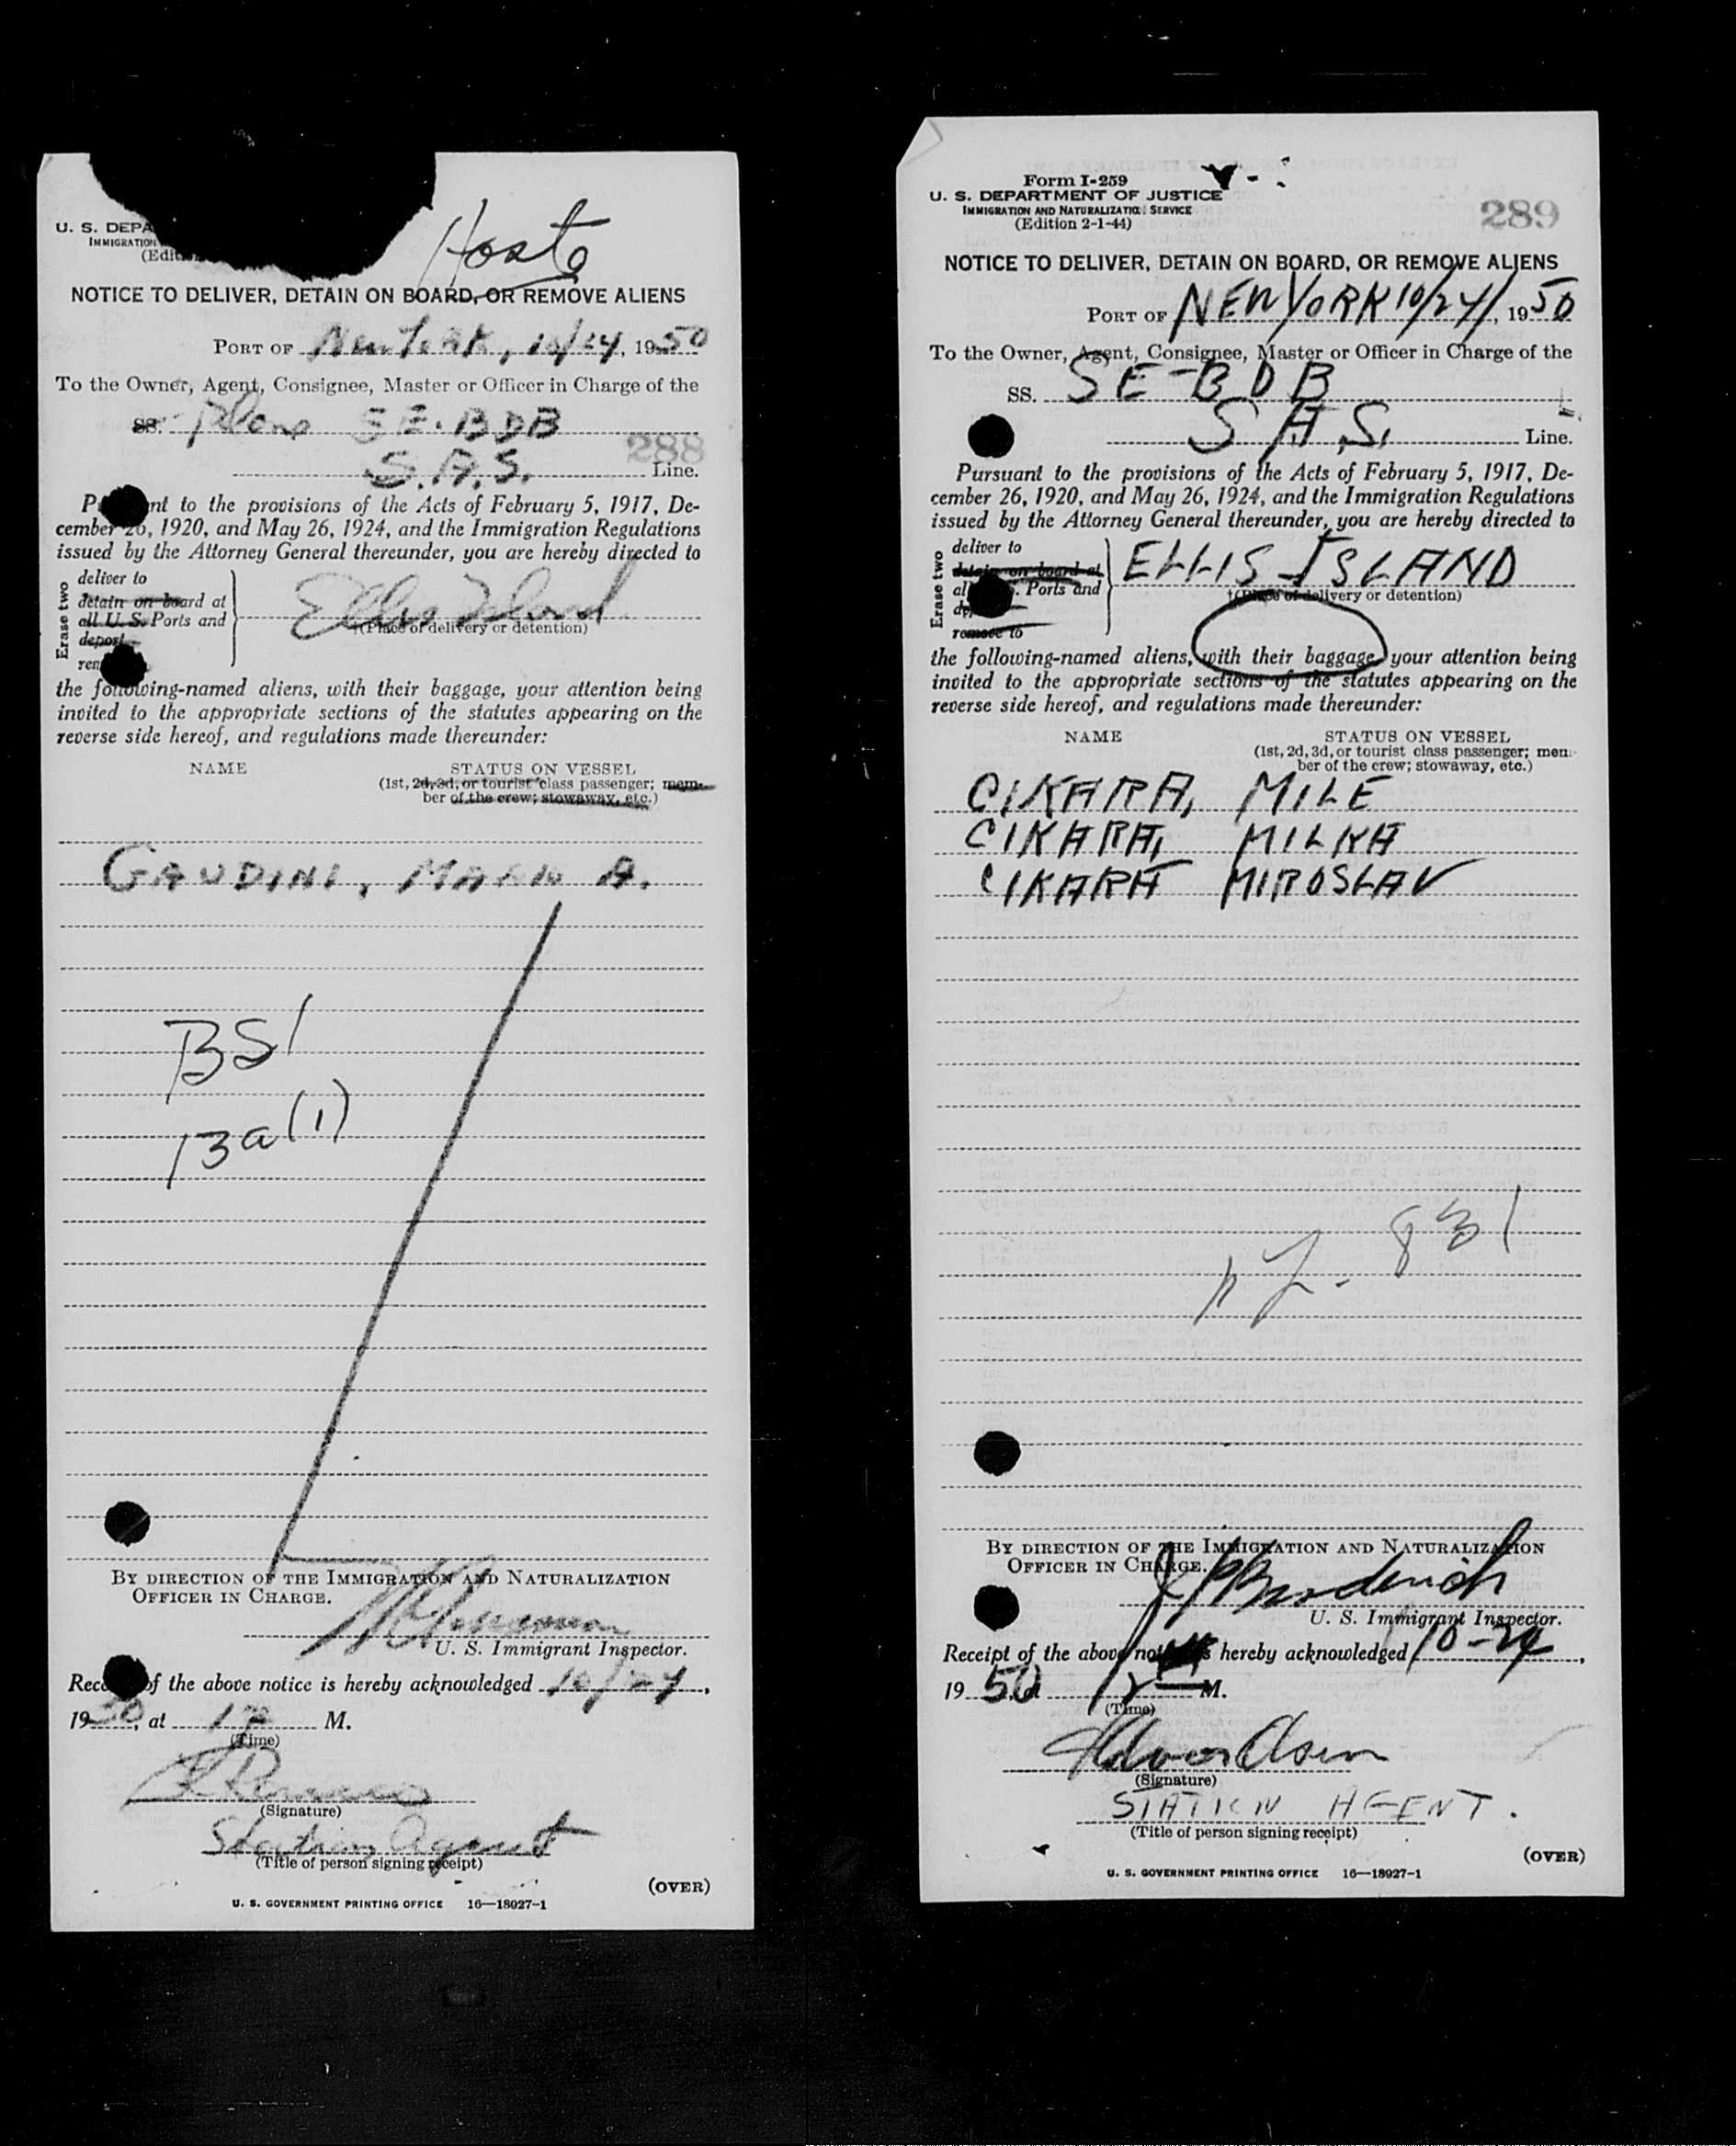 U. S. DEPA
IMMIGRATION
(Edit
Hosts
NOTICE TO DELIVER, DETAIN ON BOARD, OR REMOVE ALIENS
PORT OF New York, 10/24, 1950
To the Owner, Agent, Consignee, Master or Officer in Charge of the
SS. Plane SE-BDB
288
S.A.S. Line.
P nt to the provisions of the Acts of February 5, 1917, De-
cember 26, 1920, and May 26, 1924, and the Immigration Regulations
issued by the Attorney General thereunder, you are hereby directed to
Erase two
deliver to
detain on board at
all U. S. Ports and
deport
rem
Ellis Island
†(Place of delivery or detention)
the following-named aliens, with their baggage, your attention being
invited to the appropriate sections of the statutes appearing on the
reverse side hereof, and regulations made thereunder:
NAME STATUS ON VESSEL
(1st, 2d, 3d, or tourist class passenger; mem-
ber of the crew; stowaway, etc.)
GAUDINI, A.
BSI
13a(1)
BY DIRECTION OF THE IMMIGRATION AND NATURALIZATION
OFFICER IN CHARGE.
U. S. Immigrant Inspector.
Rece of the above notice is hereby acknowledged 10/24,
1950, at 12 M.
(Time)
(Signature)
Station Agent
(Title of person signing receipt)
(OVER)
U. S. GOVERNMENT PRINTING OFFICE 16—18927-1
Form I-259
U. S. DEPARTMENT OF JUSTICE
IMMIGRATION AND NATURALIZATION SERVICE
(Edition 2-1-44)
289
NOTICE TO DELIVER, DETAIN ON BOARD, OR REMOVE ALIENS
PORT OF NEW YORK 10/24, 1950
To the Owner, Agent, Consignee, Master or Officer in Charge of the
SS. SE-BDB
S.A.S. Line.
Pursuant to the provisions of the Acts of February 5, 1917, De-
cember 26, 1920, and May 26, 1924, and the Immigration Regulations
issued by the Attorney General thereunder, you are hereby directed to
Erase two
deliver to
detain on board at
al . Ports and
de
remove to
ELLIS ISLAND
†(Place of delivery or detention)
the following-named aliens, with their baggage, your attention being
invited to the appropriate sections of the statutes appearing on the
reverse side hereof, and regulations made thereunder:
NAME STATUS ON VESSEL
(1st, 2d, 3d, or tourist class passenger; mem-
ber of the crew; stowaway, etc.)
CIKARA, MILE
CIKARA, MILKA
CIKARA MIROSLAV
831
BY DIRECTION OF THE IMMIGRATION AND NATURALIZATION
OFFICER IN CHARGE.
J P Broderick
U. S. Immigrant Inspector.
Receipt of the above notice is hereby acknowledged 10-24,
1950, at 12 M.
(Time)
Olsen
(Signature)
STATION AGENT.
(Title of person signing receipt)
(OVER)
U. S. GOVERNMENT PRINTING OFFICE 16—18927-1